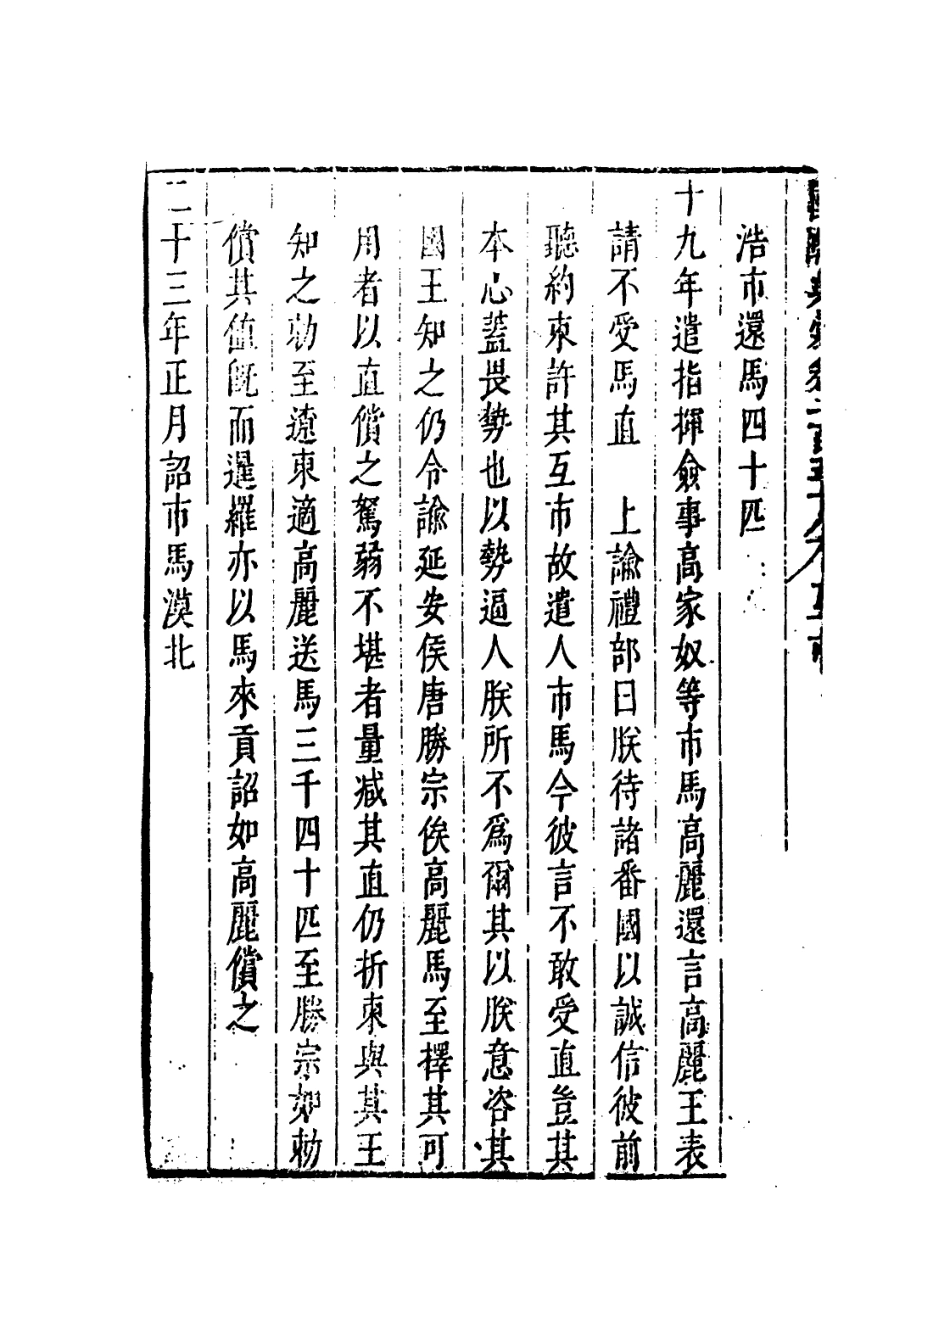 浩市還馬四十匹
十九年遣指揮僉事高家奴等市馬高麗還言高麗王表
請不受馬直　上諭禮部曰朕待諸番國以誠信彼前
聽約束許其互市故遣人市馬今彼言不敢受直豈其
本心蓋畏勢也以勢逼人朕所不為爾其以朕意咨其
國王知之仍令諭延安侯唐勝宗俟高麗馬至擇其可
用者以直償之駑弱不堪者量減其直仍折柬與其王
知之勑至遼東適高麗送馬三千四十匹至勝宗如勑
償其值既而暹羅亦以馬來貢詔如高麗償之
二十三年正月詔市馬漠北